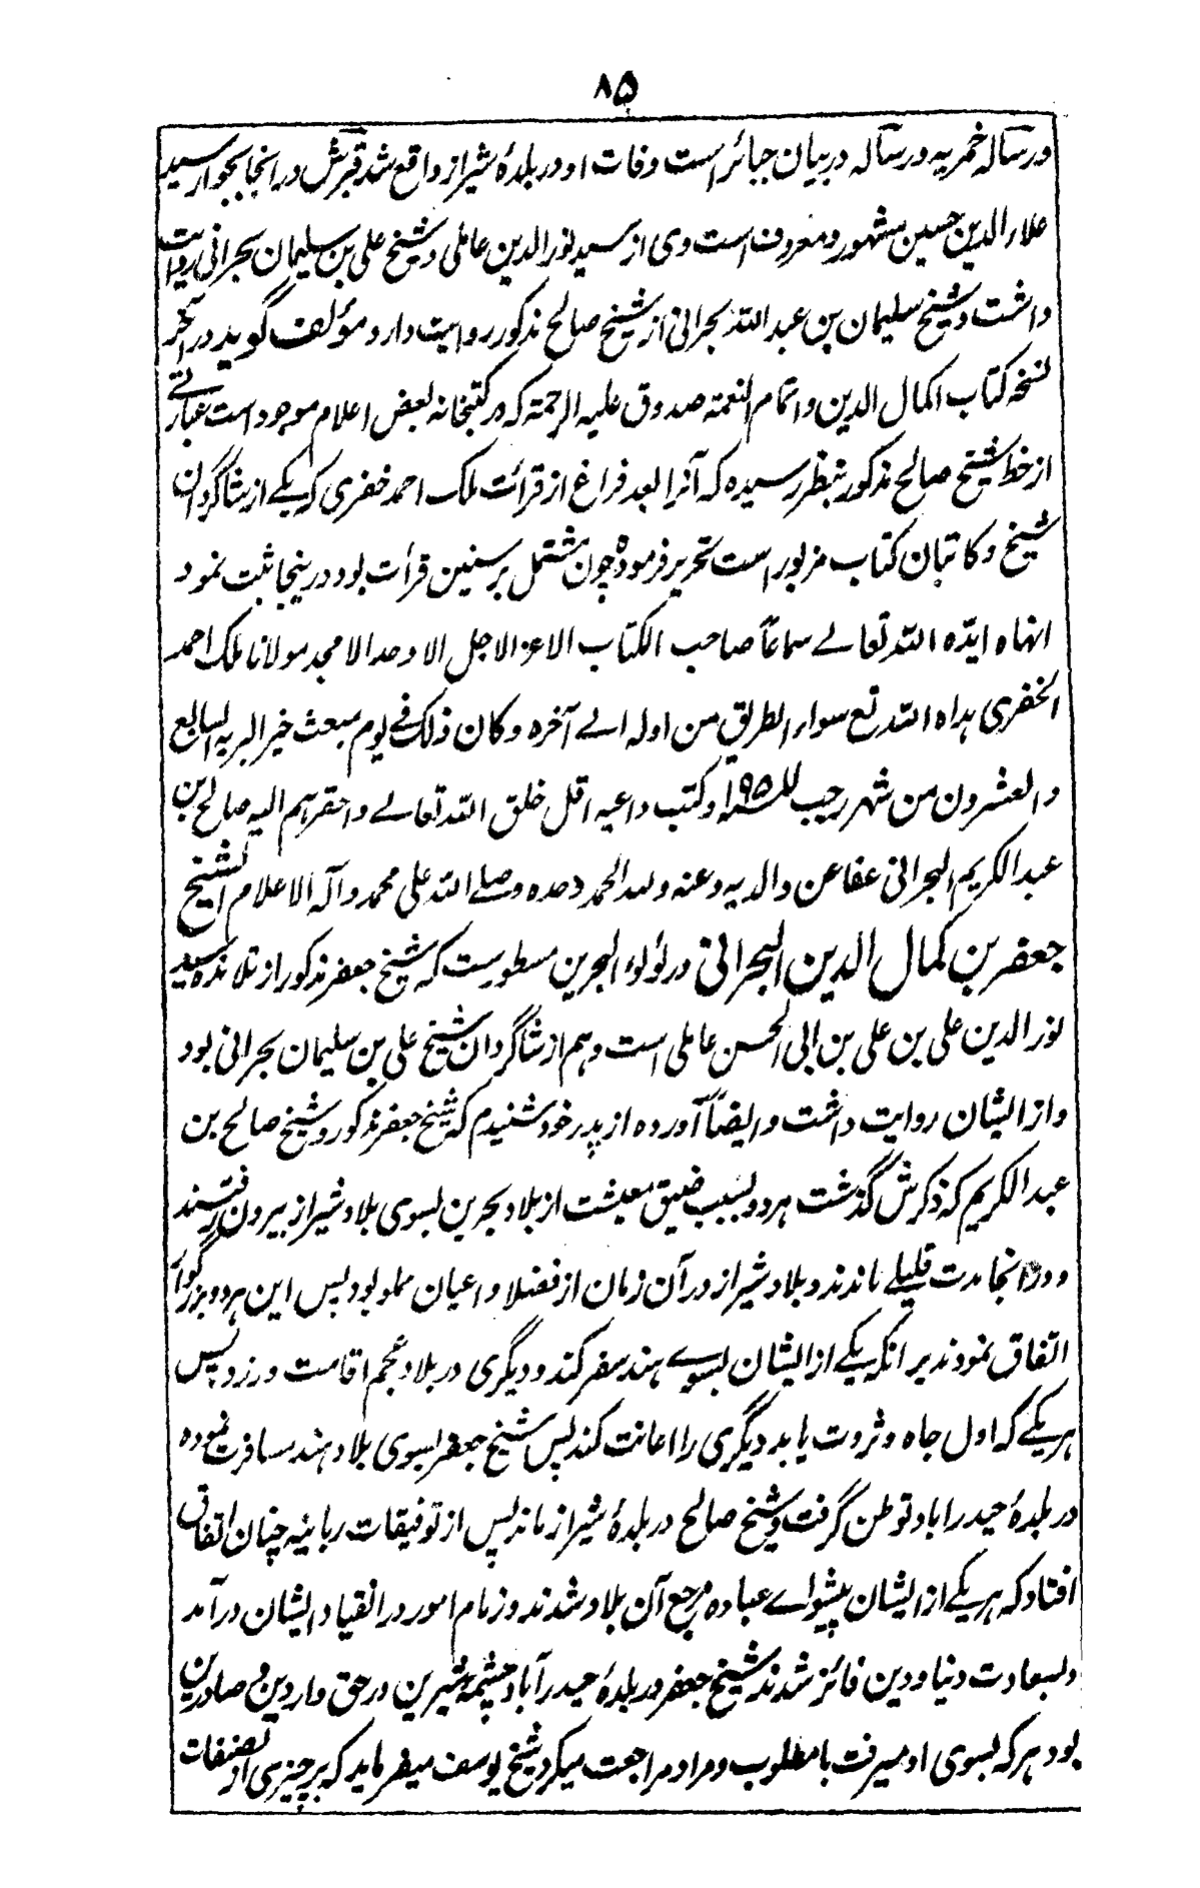 ۸۵
ورساله خمریه ورساله در بیان جبائر است وفات او در بلدهٔ شیراز واقع شد قبرش در انجا بجوار سید
علاء الدین حسین مشهور و معروف است وی از سید نور الدین عاملی و شیخ علی بن سلیمان بحرانی روایت
داشت و شیخ سلیمان بن عبد الله بحرانی از شیخ صالح مذکور روایت دارد مؤلف گوید در آخر
نسخه کتاب اکمال الدین و اتمام النعمة صدوق علیه الرحمة که در کتبخانه بعض اعلام موجود است عبارتے
از خط شیخ صالح مذکور بنظر رسیده که آنرا بعد فراغ از قرائت ملک احمد خفری که یکے از شاگردان
شیخ و کاتبان کتاب مزبور است تحریر فرموده چون مشتمل بر سنین قرأت بود در ینجا ثبت نمود
انهاه ایده الله تعالے سماعاً صاحب الکتاب الاعز الاجل الاوحد الامجد مولانا ملک احمد
الخفری هداه الله تع سواء الطریق من اوله الے آخره و کان ذلک فے یوم مبعث خیر البریه السابع
والعشرون من شهر رجب للسنه ۱۰۹۵ و کتب داعیه اقل خلق الله تعالے و احقرهم الیه صالح بن
عبد الکریم البحرانی عفا عن والدیه و عنه ولله الحمد وحده وصلے الله علی محمد وآله الاعلام الشیخ
جعفر بن کمال الدین البحرانی در لؤلوء البحرین مسطورست که شیخ جعفر مذکور از تلامذه سید
نور الدین علی بن علی بن ابی الحسن عاملی است و هم از شاگردان شیخ علی بن سلیمان بحرانی بود
و از ایشان روایت داشت و ایضاً آورده از پدر خود شنیدم که شیخ جعفر مذکور و شیخ صالح بن
عبد الکریم که ذکرش گذشت هر دو بسبب ضیق معیشت از بلاد بحرین بسوی بلاد شیراز بیرون رفتند
و در انجا مدت قلیلے ماندند و بلاد شیراز در آن زمان از فضلا و اعیان مملو بود پس این هر دو بزرگوار
اتفاق نمودند بر انکه یکے از ایشان بسوے هند سفر کند و دیگری در بلاد عجم اقامت ورزد پس
هر یکے که اول جاه و ثروت یابد دیگری را اعانت کند پس شیخ جعفر بسوی بلاد هند مسافرت نموده
در بلدهٔ حیدراباد توطن گرفت و شیخ صالح در بلدهٔ شیراز ماند پس از توفیقات ربانیه چنان اتفاق
افتاد که هر یکے از ایشان پیشواے عباد و مرجع آن بلاد شدند و زمام امور در انقیاد ایشان درآمد
و بسعادت دنیا و دین فائز شدند شیخ جعفر در بلدهٔ حیدرآباد چشمهٔ شیرین در حق واردین و صادرین
بود هر که بسوی او میرفت با مطلوب و مراد مراجعت میکرد شیخ یوسف میفرماید که بر چیزی از تصنیفات